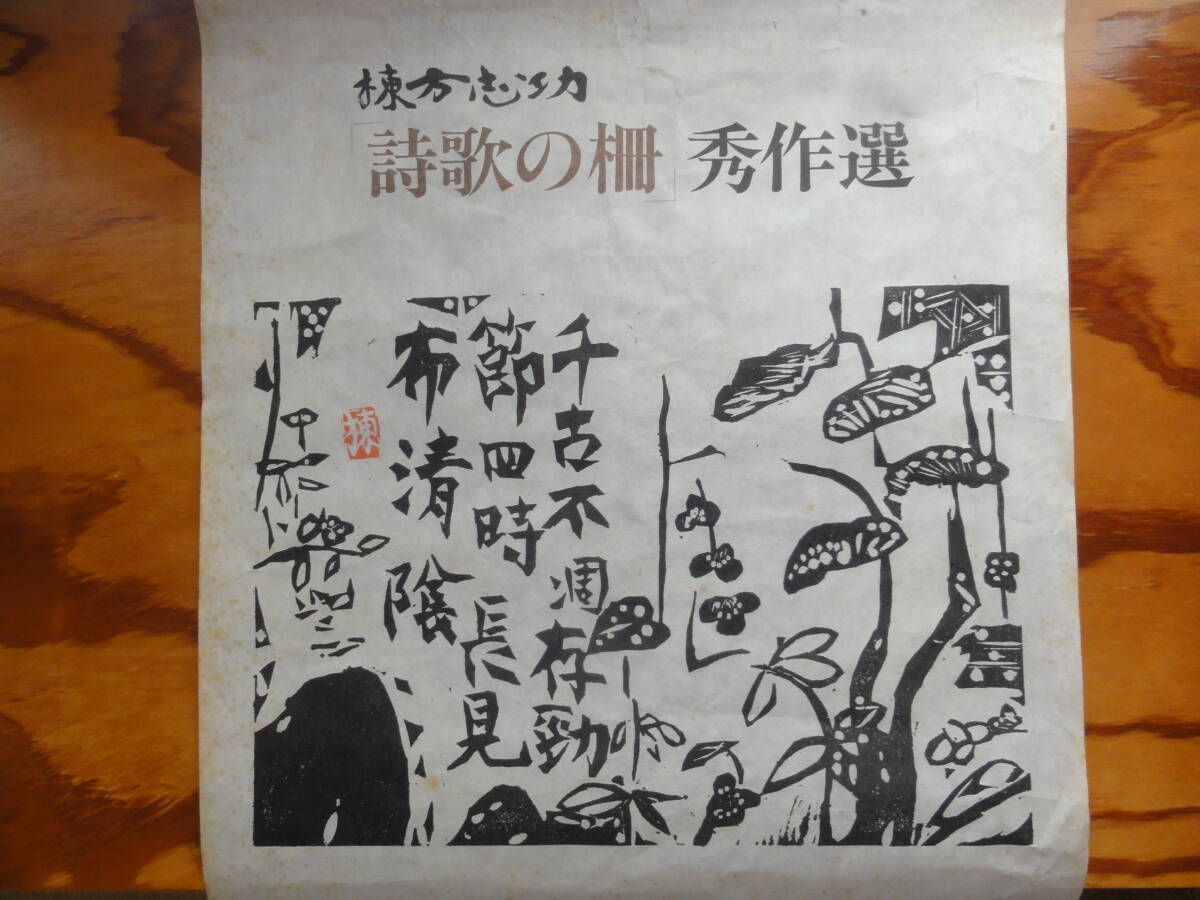 棟方志功
「詩歌の柵」秀作選
千古不凋存勁
節四時長見
布清陰
棟